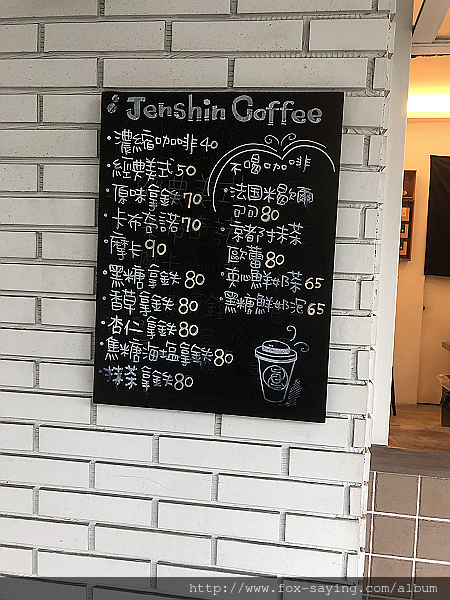 Jenshin Coffee
·濃縮咖啡40
·經典美式50
·原味拿鉄70
·卡布奇諾70
·摩卡90
·黑糖拿鉄80
·香草拿鉄80
·杏仁拿鉄80
·焦糖海塩拿鉄80
·抹茶拿鉄80
不喝咖啡
·法国米歇爾
可可80
·京都抹茶
歐蕾80
·夾心鮮奶茶65
·黑糖鮮奶泥65
http://www.fox-saying.com/album